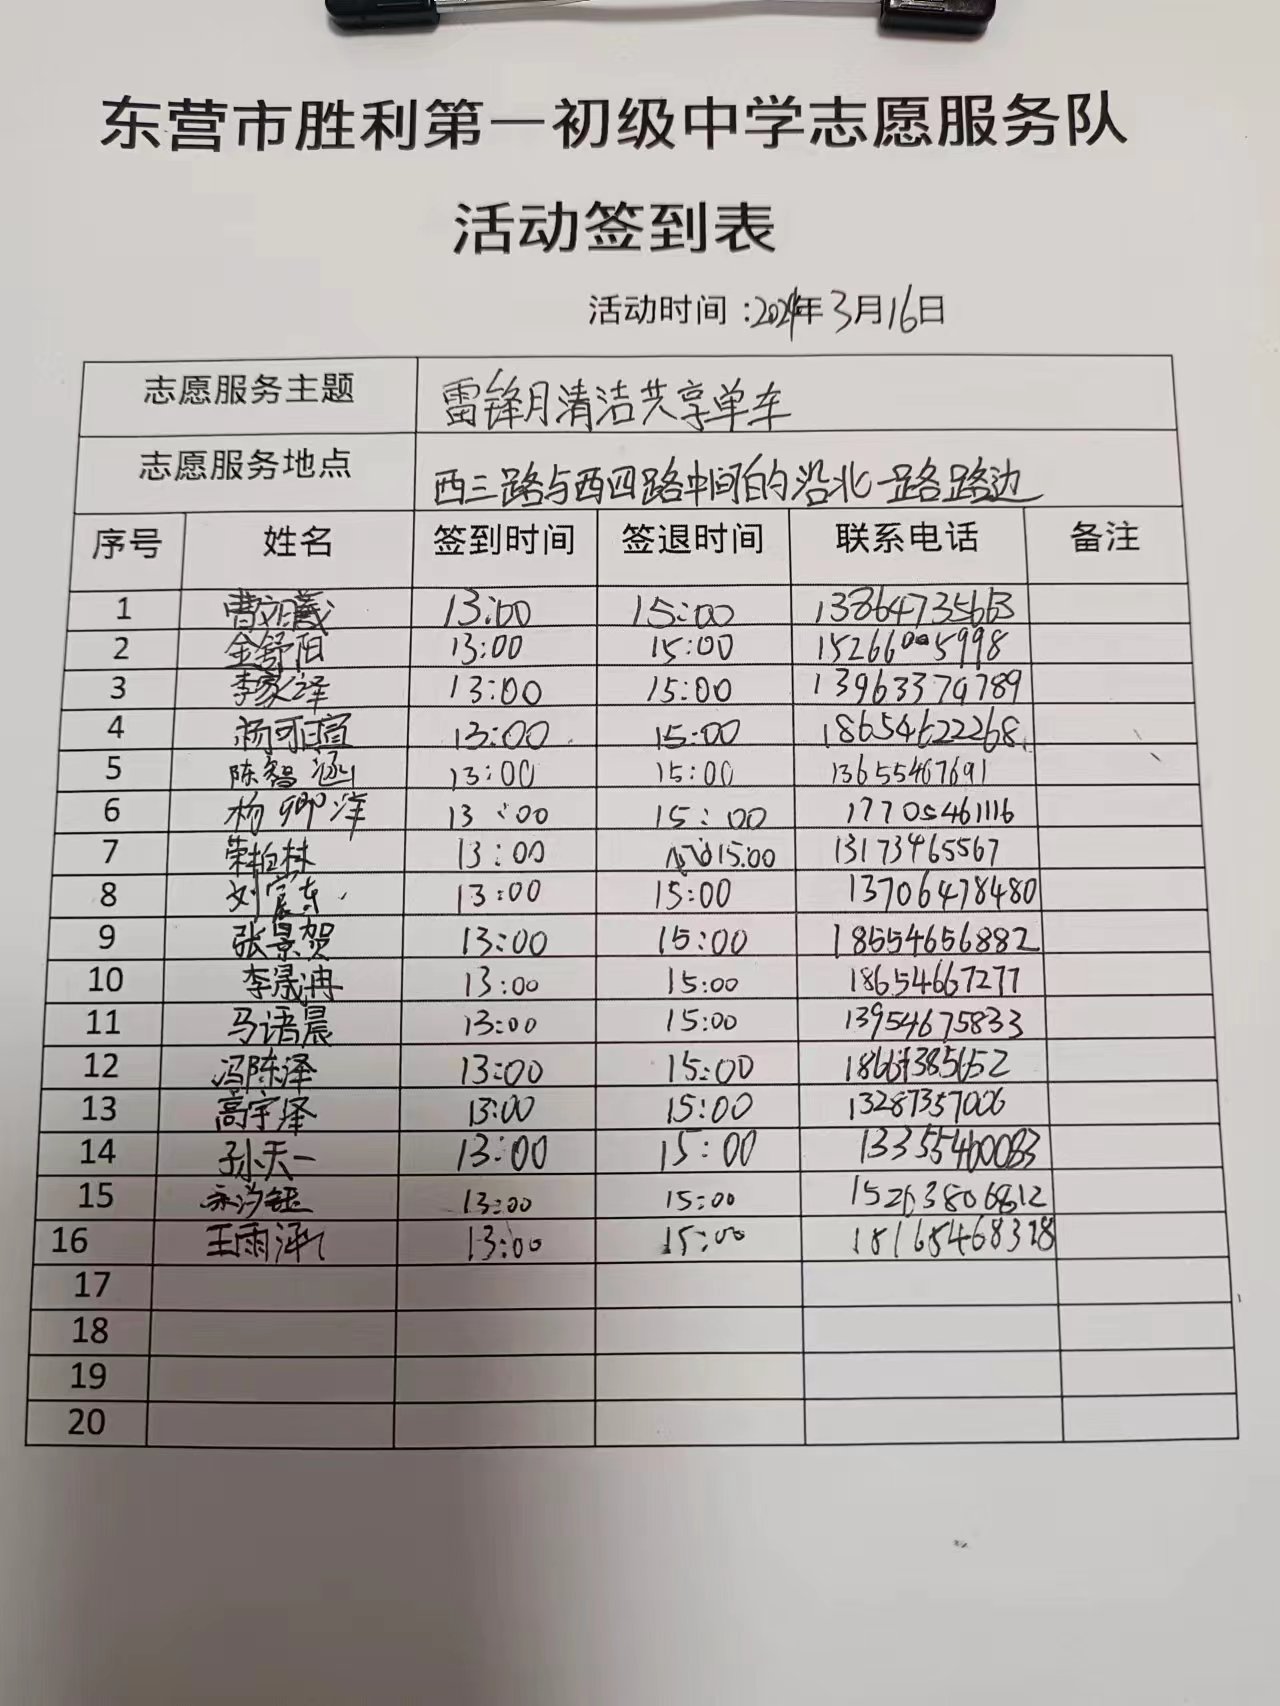 东营市胜利第一初级中学志愿服务队
活动签到表
活动时间：2024年3月16日
志愿服务主题 雷锋月清洁共享单车
志愿服务地点 西三路与西四路中间的沿北一路路边
序号 姓名 签到时间 签退时间 联系电话 备注
1 曹文曦 13:00 15:00 13864735663
2 金舒阳 13:00 15:00 15266005998
3 李家泽 13:00 15:00 13963379789
4 杨可暄 13:00 15:00 18654622268
5 陈智涵 13:00 15:00 13655467691
6 杨卿洋 13:00 15:00 17705461116
7 荣柏林 13:00 15:00 13173465567
8 刘宸东 13:00 15:00 13706478480
9 张景贺 13:00 15:00 18554656882
10 李晟冉 13:00 15:00 18654667277
11 马语晨 13:00 15:00 13954675833
12 冯陈泽 13:00 15:00
13 高宇泽 13:00 15:00 13287357006
14 孙天一 13:00 15:00 13355460083
15 13:00 15:00 15263806812
16 王雨涵 13:00 15:00 18165468328
17
18
19
20